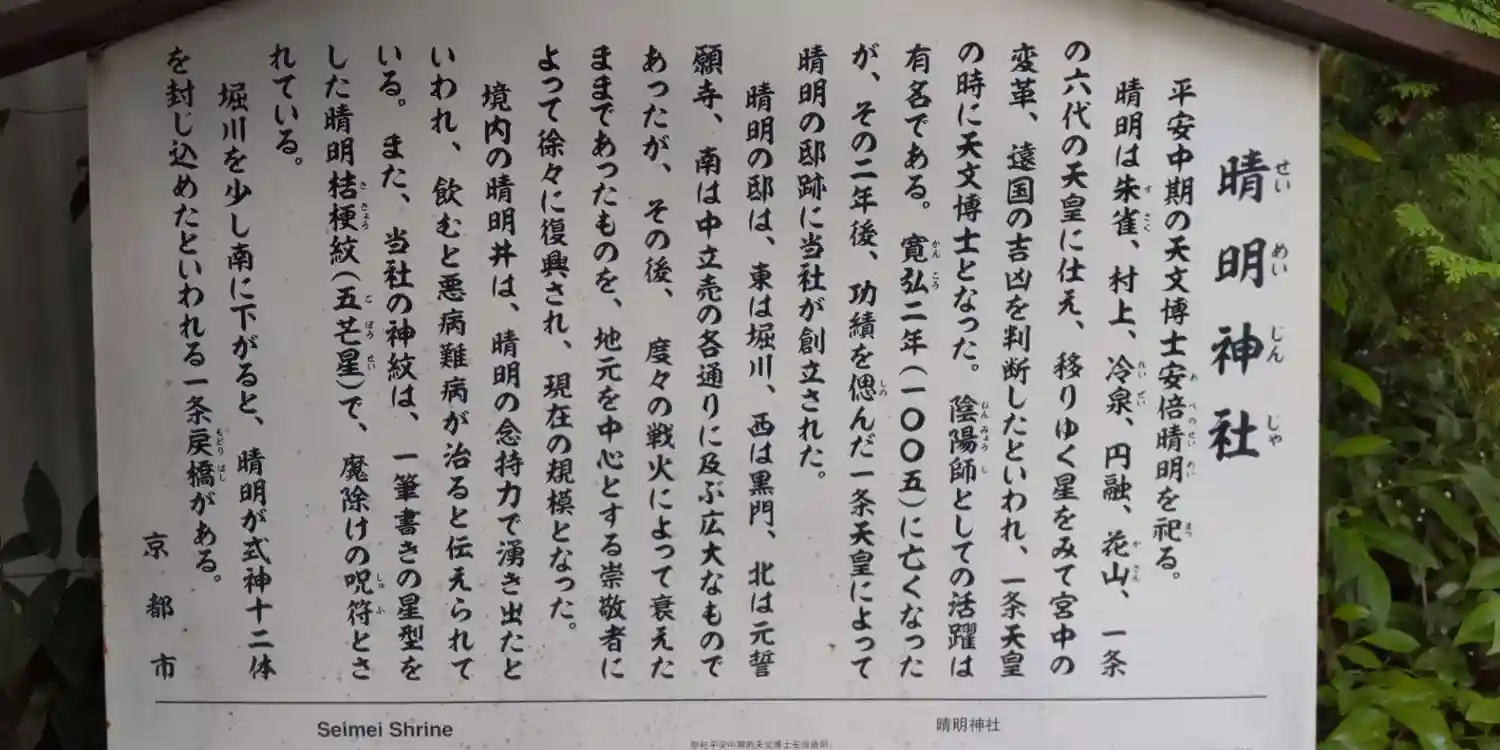 晴明神社
せいめいじんじゃ
平安中期の天文博士安倍晴明を祀る。
あべのせいめい
まつ
晴明は朱雀、村上、冷泉、円融、花山、一条
すざく
れいぜい
かざん
の六代の天皇に仕え、移りゆく星をみて宮中の
変革、遠国の吉凶を判断したといわれ、一条天皇
の時に天文博士となった。陰陽師としての活躍は
おんみょうし
有名である。寛弘二年(一〇〇五)に亡くなった
かんこう
が、その二年後、功績を偲んだ一条天皇によって
しの
晴明の邸跡に当社が創立された。
晴明の邸は、東は堀川、西は黒門、北は元誓
願寺、南は中立売の各通りに及ぶ広大なもので
あったが、その後、度々の戦火によって衰えた
ままであったものを、地元を中心とする崇敬者に
よって徐々に復興され、現在の規模となった。
境内の晴明井は、晴明の念持力で湧き出たと
いわれ、飲むと悪病難病が治ると伝えられて
いる。また、当社の神紋は、一筆書きの星型を
した晴明桔梗紋(五芒星)で、魔除けの呪符とさ
ききょう
ごぼうせい
じゅふ
れている。
堀川を少し南に下がると、晴明が式神十二体
を封じ込めたといわれる一条戻橋がある。
もどりばし
京都市
Seimei Shrine
晴明神社